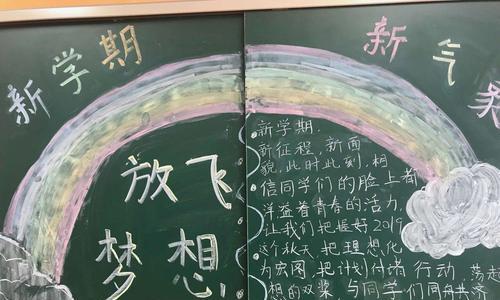 新学期
新气象
放飞
梦想
新学期，
新征程，新面
貌，此时此刻，相
信同学们的脸上都
洋益着青春的活力，
让我们把握好2019
这个秋天，把理想化
为宏图，把计划付诸行动，荡起
想的双桨，与同学们同舟共济